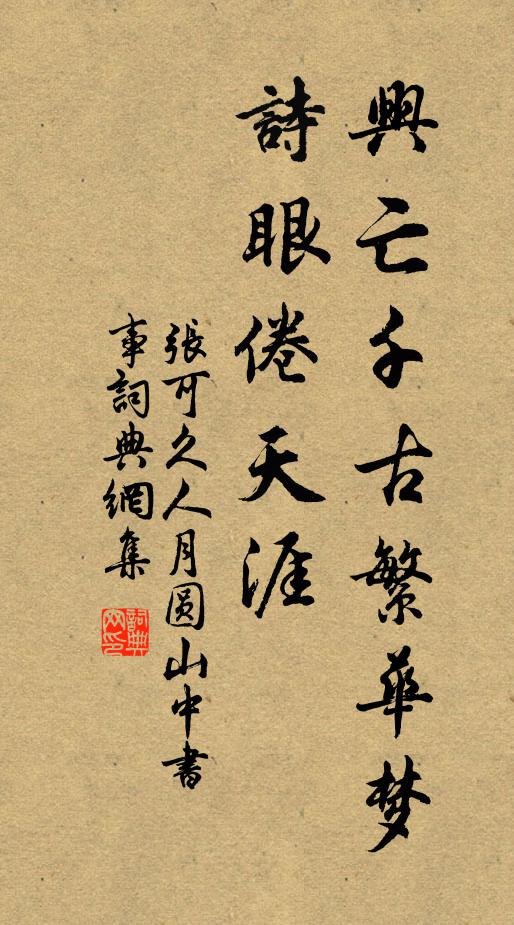 興亡千古繁華梦
詩眼倦天涯
張可久人月圆山中書
事詞典網集
詞典
网印